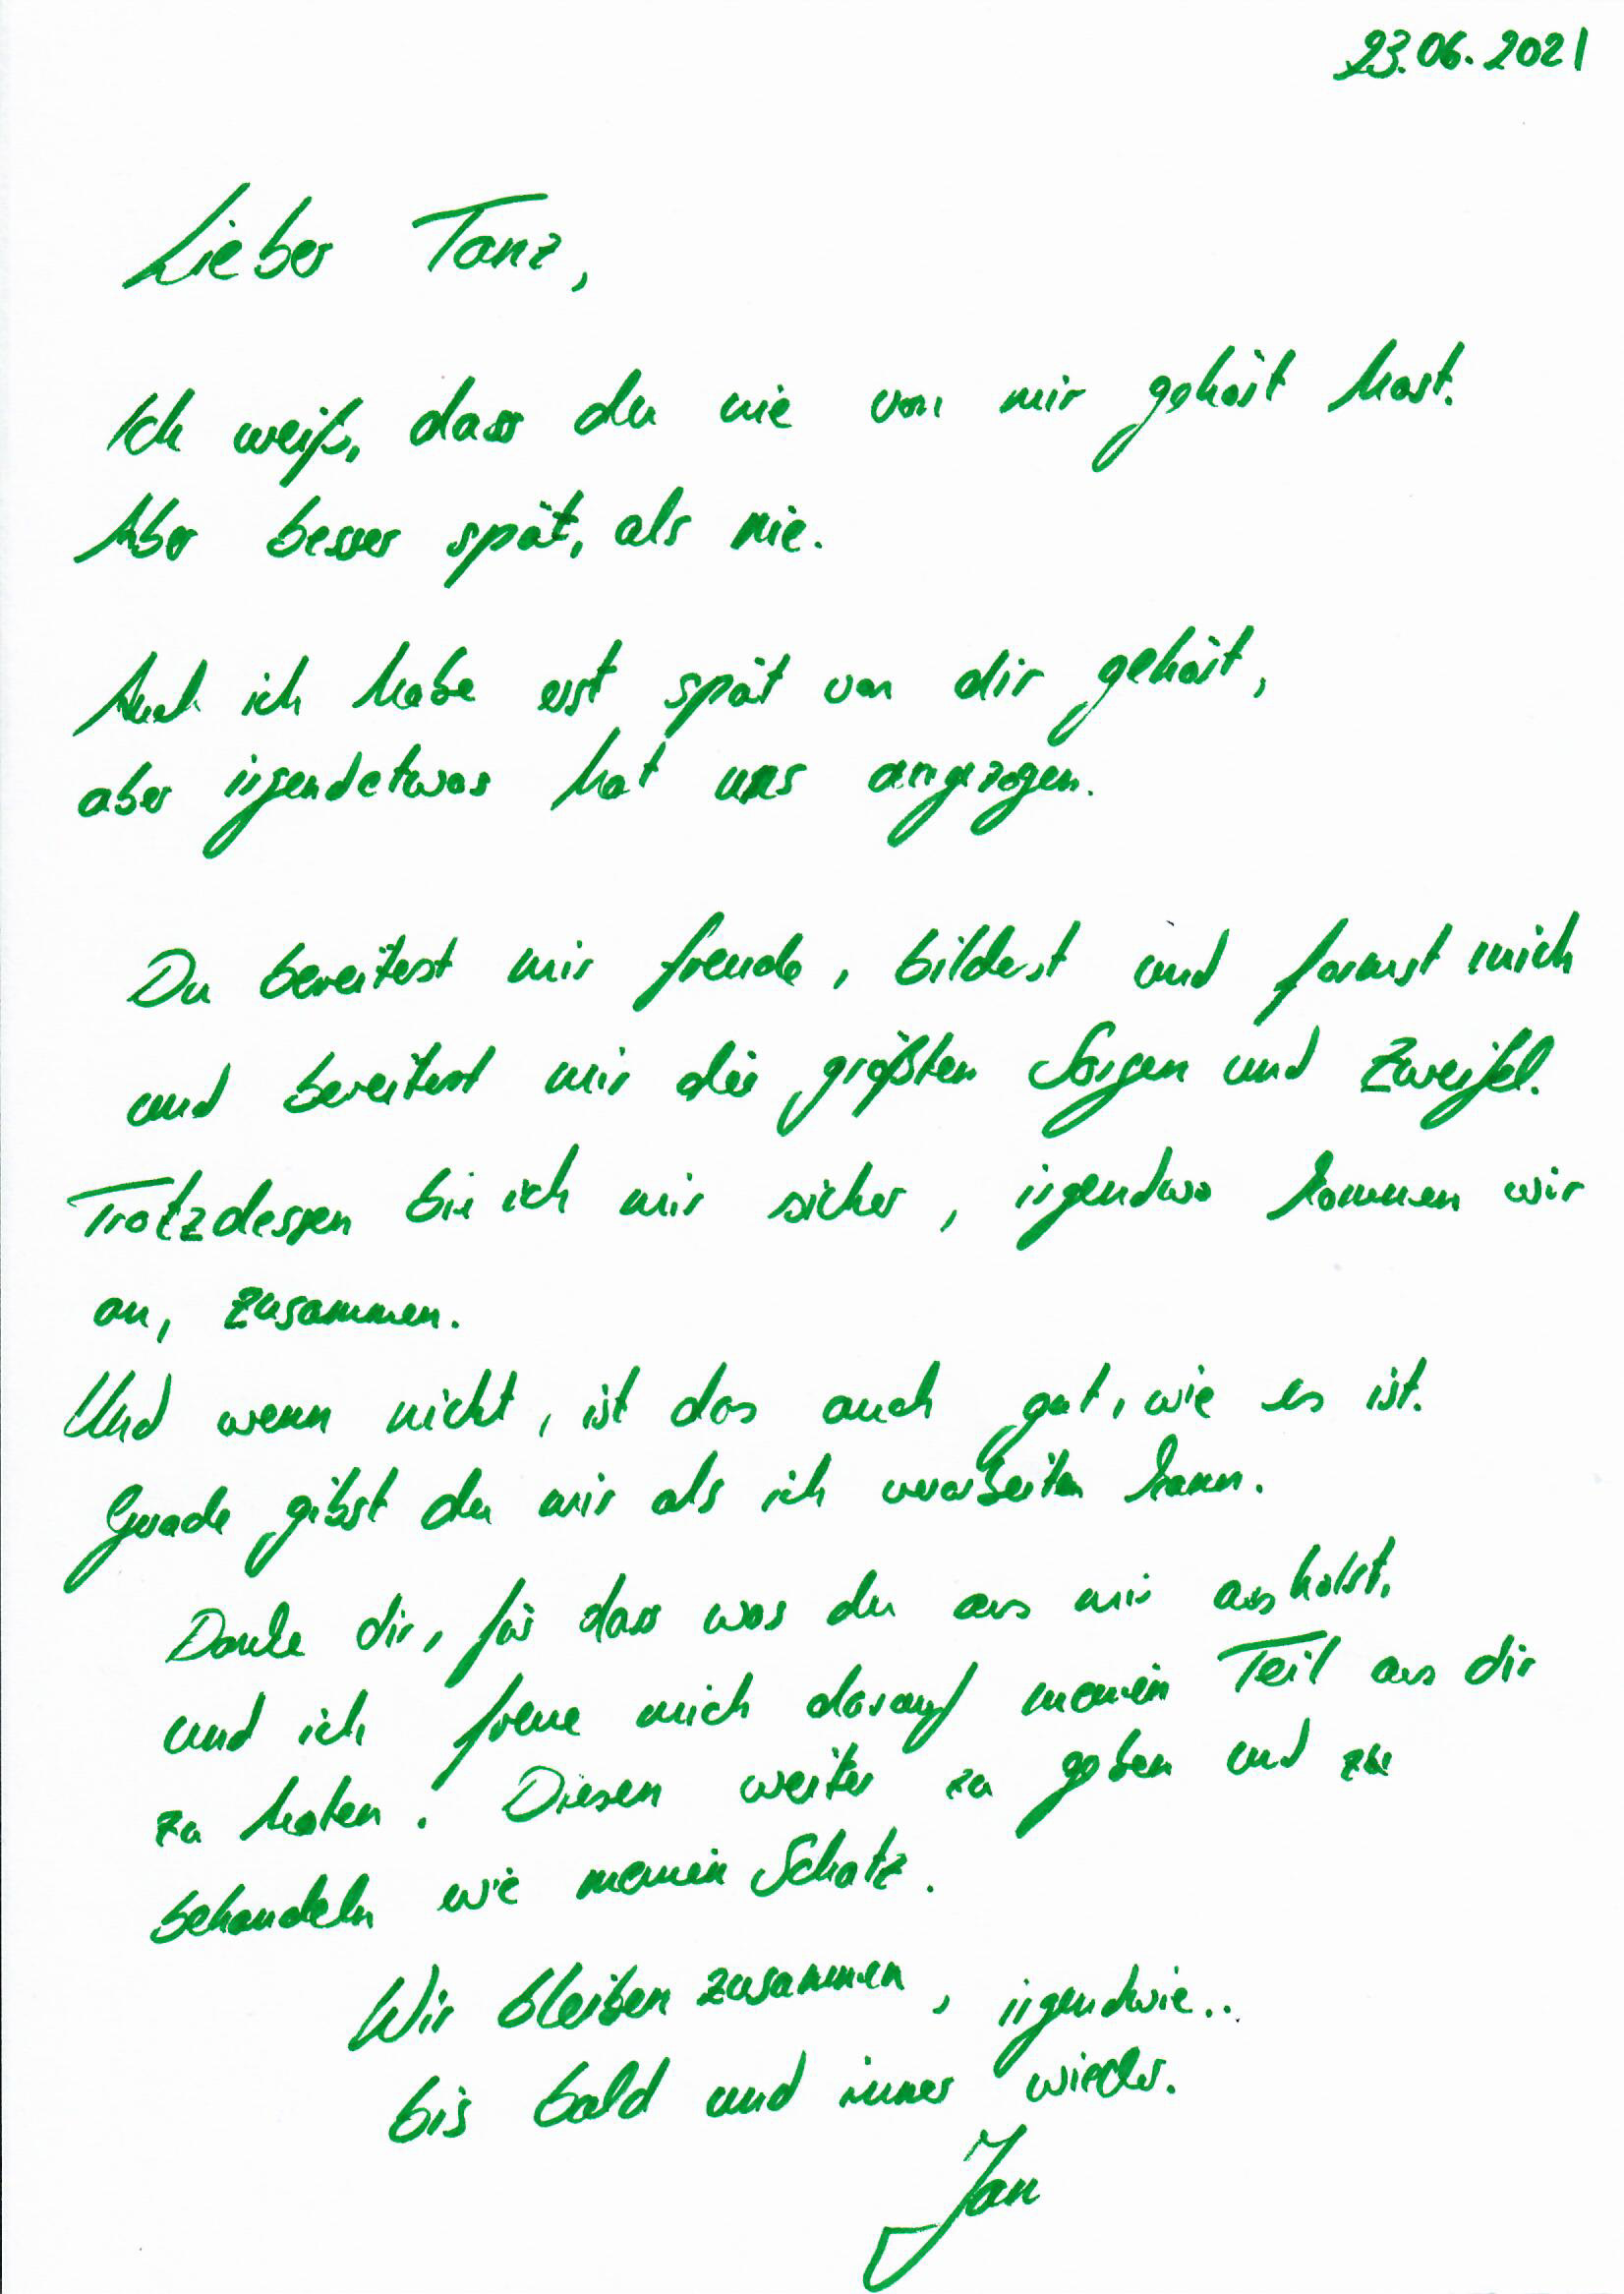 23.06.2021
Lieber Tanz,
Ich weiß, dass du nie von mir gehört hast.
Aber besser spät, als nie.
Auch ich habe erst spät von dir gehört,
aber irgendetwas hat uns angezogen.
Du bereitest mir freude, bildest und formst mich
und bereitest mir die größten Sorgen und Zweifel.
Trotzdessen bin ich mir sicher, irgendwo kommen wir
an, zusammen.
Und wenn nicht, ist das auch gut, wie es ist.
Gerade gibst du mir als ich verarbeiten kann.
Danke dir, für dass was du aus mir ausholst,
und ich freue mich darauf meinen Teil aus dir
zu holen. Diesen weiter zu geben und zu
behandeln wie meinen Schatz.
Wir bleiben zusammen, irgendwie..
bis bald und immer wieder.
Jan